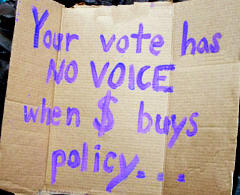 Your vote has
NO VOICE
when $ buys
policy...